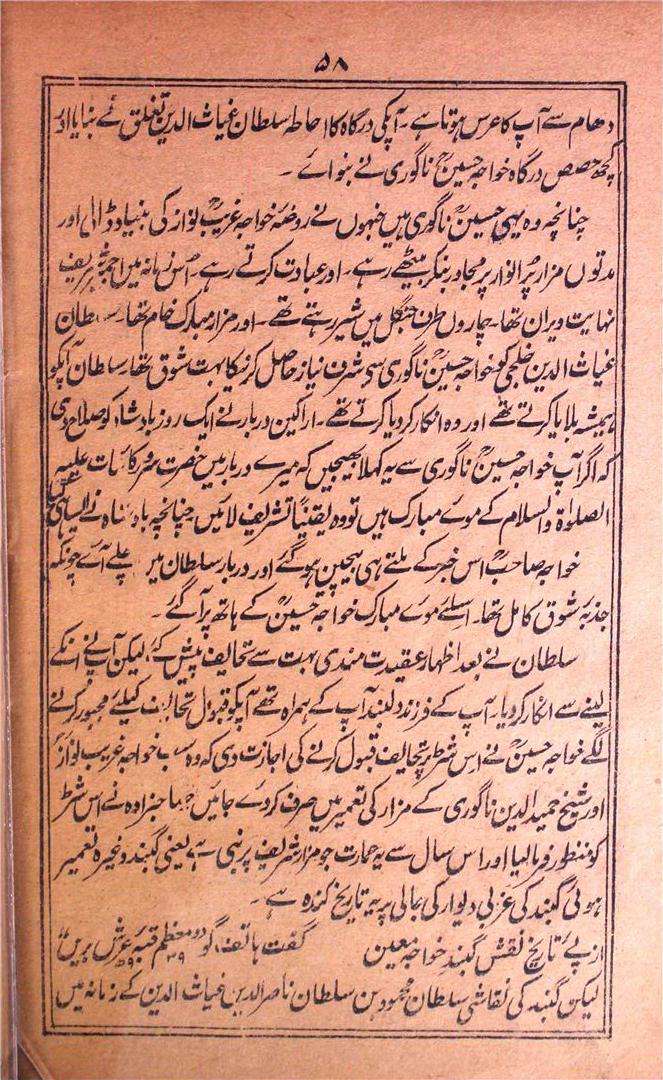 ۵۸
دھام سے آپ کا عرس ہوتا ہے۔ آپکی درگاہ کا احاطہ سلطان غیاث الدین تغلق نے بنایا اور
کچھ حصص درگاہ خواجہ حسینؒ ناگوری نے بنوائے۔
چنانچہ وہ یہی حسینؒ ناگوری ہیں جنہوں نے روضۂ خواجہ غریبؒ نواز کی بنیاد ڈالی اور
مدتوں مزار پُر انوار پر مجاور بنکر بیٹھے رہے۔ اور عبادت کرتے رہے۔ اس زمانہ میں اجمیر شریف
نہایت ویران تھا۔ چاروں طرف جنگل میں شیر رہتے تھے۔ اور مزار مبارک خام تھا۔ سلطان
غیاث الدین خلجی کو خواجہ حسینؒ ناگوری سے شرف نیاز حاصل کرنیکا بہت شوق تھا سلطان آپکو
ہمیشہ بلایا کرتے تھے اور وہ انکار کر دیا کرتے تھے۔ اراکین دربار نے ایک روز بادشاہ کو صلاح دی
کہ اگر آپ خواجہ حسینؒ ناگوری سے یہ کہلا بھیجیں کہ میرے دربار میں حضرت سرور کائنات علیہ
الصلوٰۃ والسلام کے موئے مبارک ہیں تو وہ یقیناً تشریف لائیں چنانچہ بادشاہ نے ایسا ہی
خواجہ صاحبؒ اس خبر کے ملتے ہی بیچین ہو گئے اور دربار سلطان میں چلے آئے چونکہ
جذبۂ شوق کامل تھا۔ اسلئے موئے مبارک خواجہ حسینؒ کے ہاتھ پر آ گئے۔
سلطان نے بعد اظہار عقیدت مندی بہت سے تحائف پیش کئے، لیکن آپنے انکے
لینے سے انکار کر دیا۔ آپ کے فرزند دلبند آپ کے ہمراہ تھے آپکو قبول تحائف کیلئے مجبور کرنے
لگے خواجہ حسینؒ نے اس شرط پر تحائف قبول کرنے کی اجازت دی کہ وہ سب خواجہ غریب نوازؒ
اور شیخ حمید الدین ناگوری کے مزار کی تعمیر میں صرف کر دئے جائیں صاحبزادہ نے اس شرط
کو منظور فرما لیا اور اس سال سے یہ عمارت جو مزار شریف پر بنی ہے یعنی گنبد وغیرہ تعمیر
ہوئی گنبد کی غربی دیوار کی جالی پر یہ تاریخ کندہ ہے۔
از پئے تاریخ نقش گنبد خواجہ معین گفت ہاتف، گو دو معظم قبۂ عرش بریں
لیکن گنبد کی نقاشی سلطان محمود بن سلطان ناصر الدین غیاث الدین کے زمانہ میں